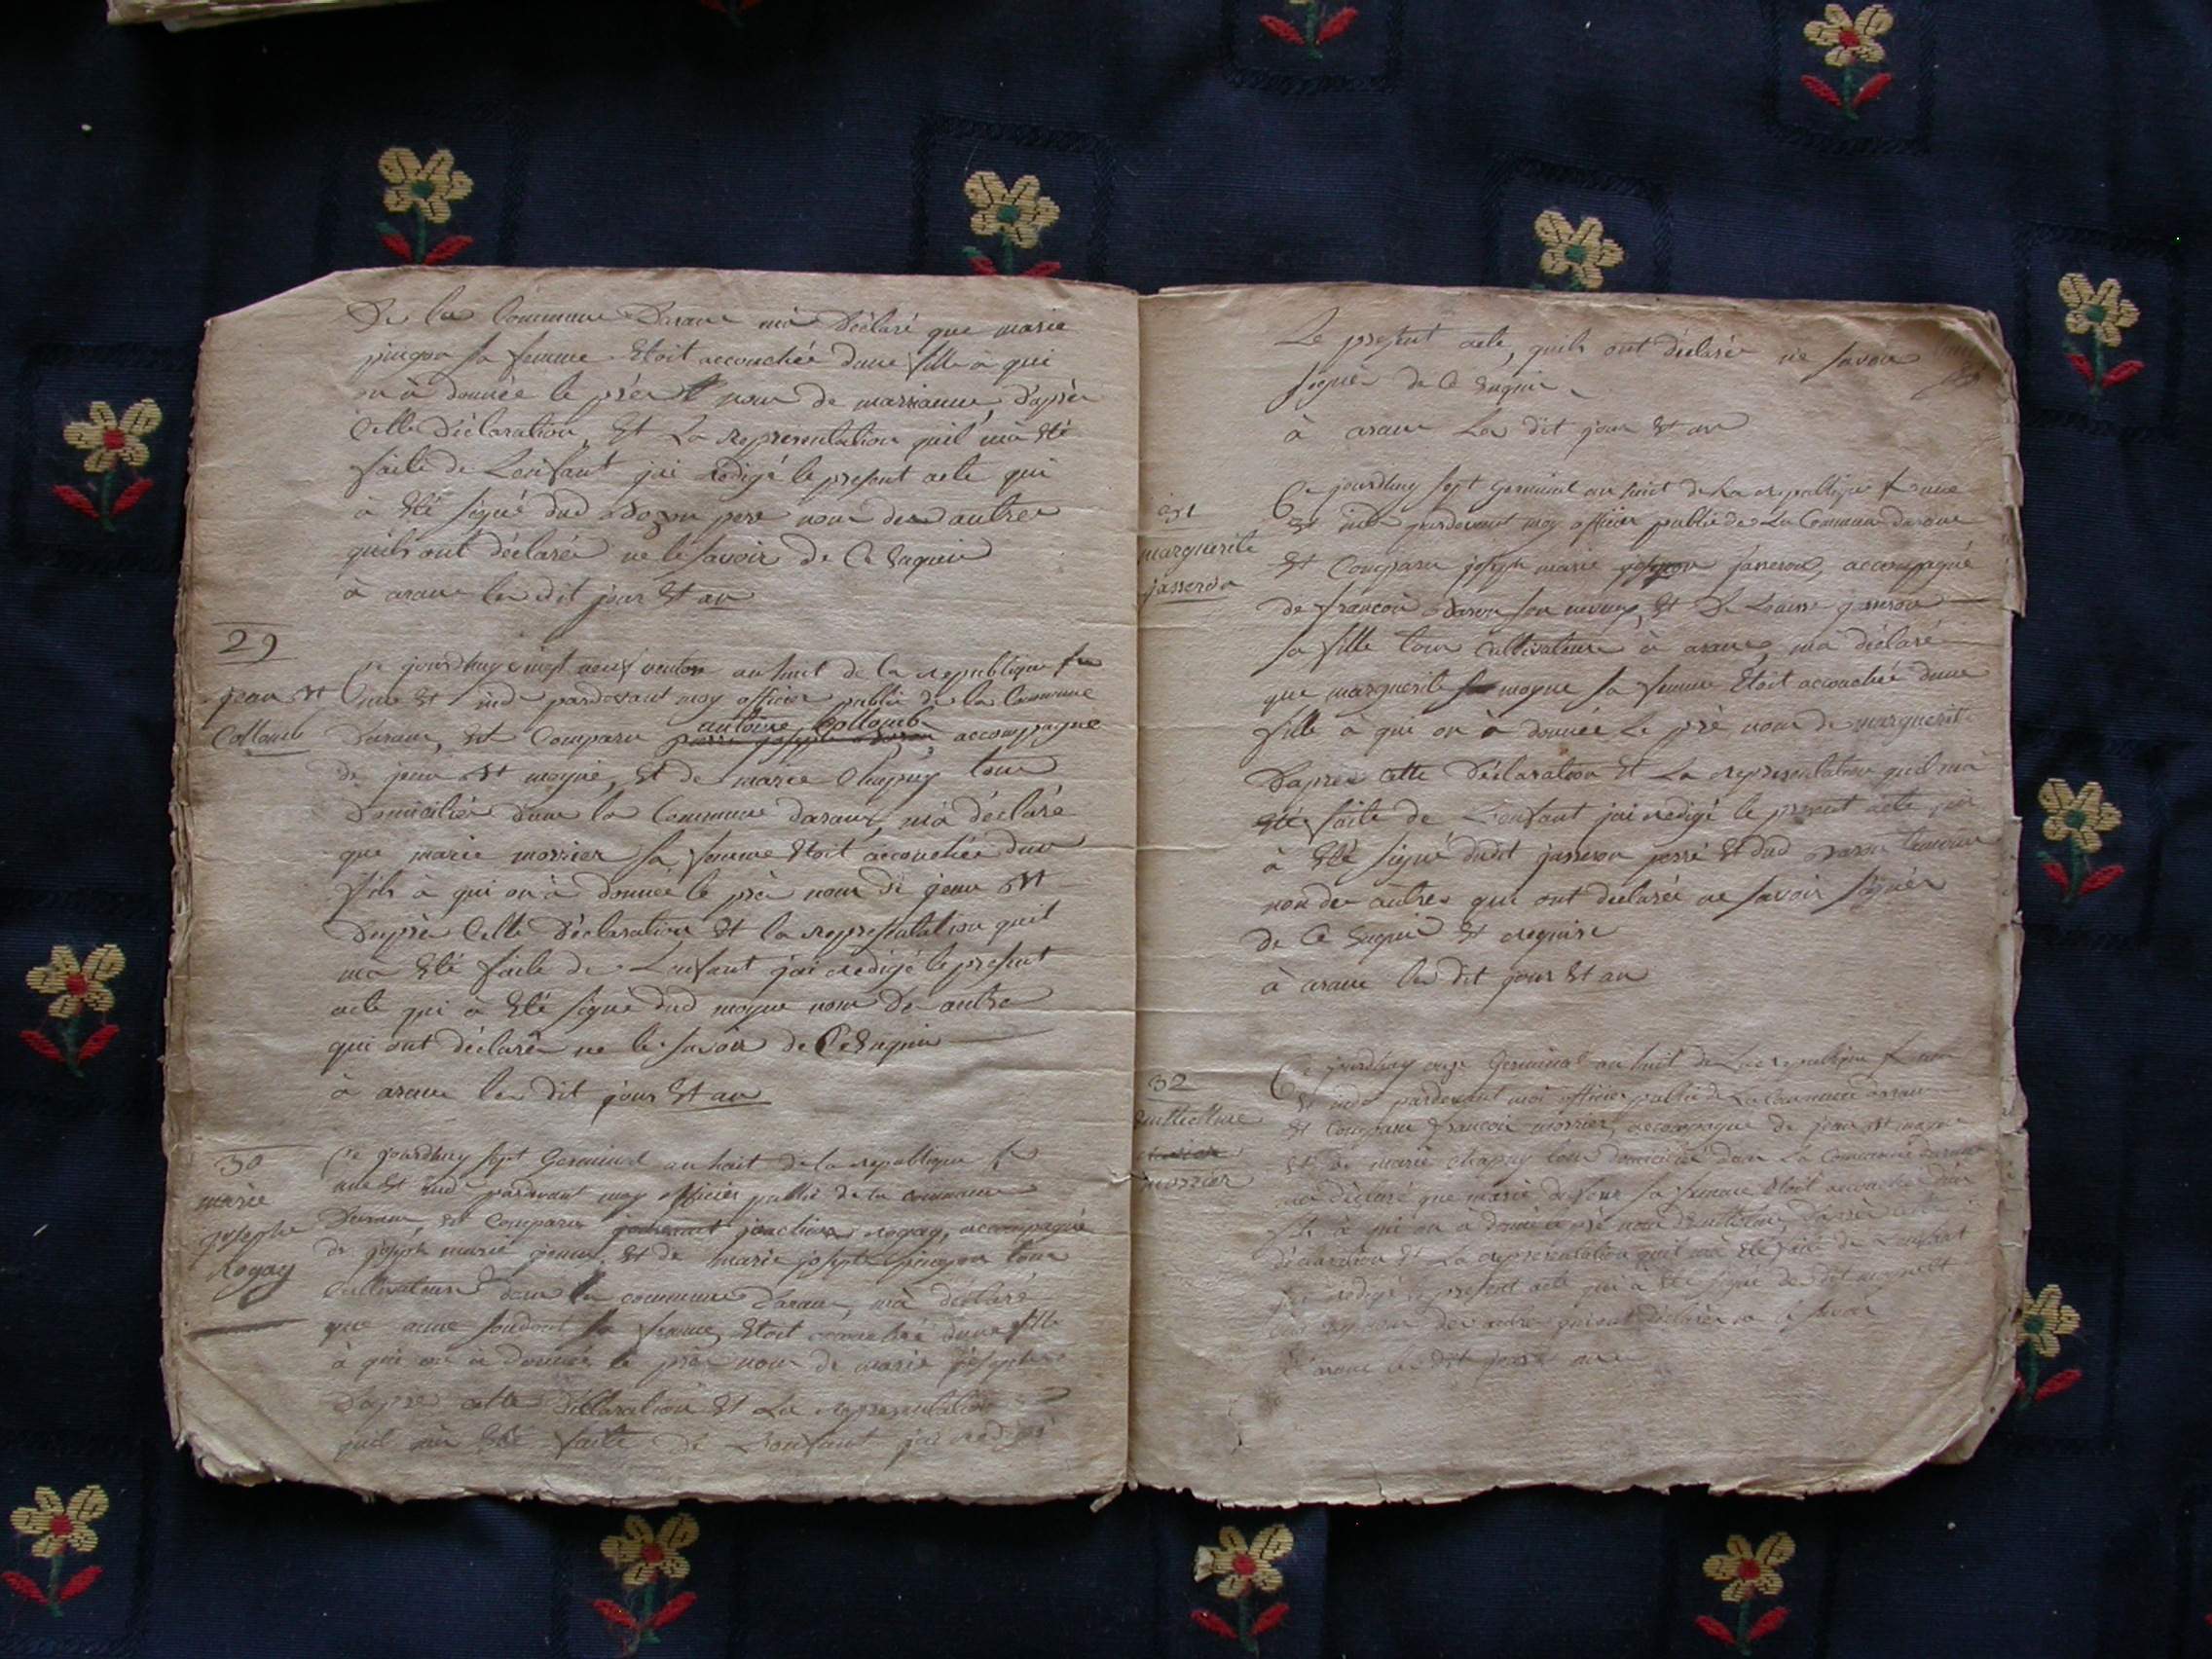 De la Commune Darane mà Déclaré que marie
pingon sa femme Etoit accouchée dune fille à qui
on à donnée le pré nom de marianne, D'aprèr
Cette Déclaration, Et La representation quil mà Eté
faite de Lenfant jai redigé le present acte qui
à Eté signé dud pere non der autrer
quils ont déclarér ne le savoir de Ce Enquir
à arane ler dit jour Et an
29
jean Bt
Collomb
Ce jourdhuy vingt neuf ventose an huit de la republique fr
une Et ind pardevant moy officier public de la Commune
Darane, Est Comparu antoine Collomb accompagné
de jean Bt moyne, Et de marie Chapuy tous
Domiciliér dans la Commune darane, mà déclaré
que marie morrier sa femme Etoit accouchée dun
fils à qui on à donnée le pré nom de jean Bt
Daprèr Cette Déclaration Et la representation quil
mà Eté faite de Lenfant jai redigé le present
acte qui à Eté signé dud moyne non Der autre
qui ont déclarér ne le savoir de Ce Enquir
à arane ler dit jour Et an
30
marie
josephe
Rogay
Ce jourdhuy sept Germinal an huit de la republique fr
une Et ind pardevant moy officier public de la commune
Darane, Est Comparu rogay, accompagné
de joseph marie Et de marie josephe pingon tous
Cultivateurs dans la commune Darane, mà déclaré
que anne sa femme, Etoit accouchée dune fille
à qui on à donnée le pré nom de marie josephe
Daprer cette Déclaration Et La representation
quil mà Eté faite de Lenfant jai redigé
Le present acte, quils ont déclarér ne savoir
signér de Ce Enquir
à arane Ler dit jour Et an
31
marguerite
jasseron
Ce jourdhuy sept Germinal an huit de La republique f une
Et ind pardevant moy officier public de La Commune darane
Est Comparu joseph marie jasseron, accompagné
de francois son neveux, Et De Louise jasseron
sa fille tous Cultivateurs à arane, mà déclaré
que marguerite moyne sa femme Etoit accouchée dune
fille à qui on à donnée Le pré nom de marguerite
Daprer cette Déclaration Et La representation quil mà
Eté faite de Lenfant jai redigé le present acte qui
à Eté signé dudit jasseron perre Et dud
non der autrer qui ont declarér ne savoir signér
de Ce Enquir Et require
à arane ler dit jour Et an
32
morrier
Ce jourdhuy onze Germinal an huit de La republique f une
Et ind pardevant moi officier public de La Commune darane
Est Comparu francois morrier, accompagné de jean Bt moyne
Et de marie Chapuy tous domicilié dans La Commune darane
mà déclaré que marie sa femme Etoit accouchée dun
fils à qui on à donné le pré nom
déclaration Et La representation quil mà Eté faite de Lenfant
jai redigé le present acte qui à Eté signé
der autre qui ont déclarér ne le savoir
à arane ler dit jour Et an